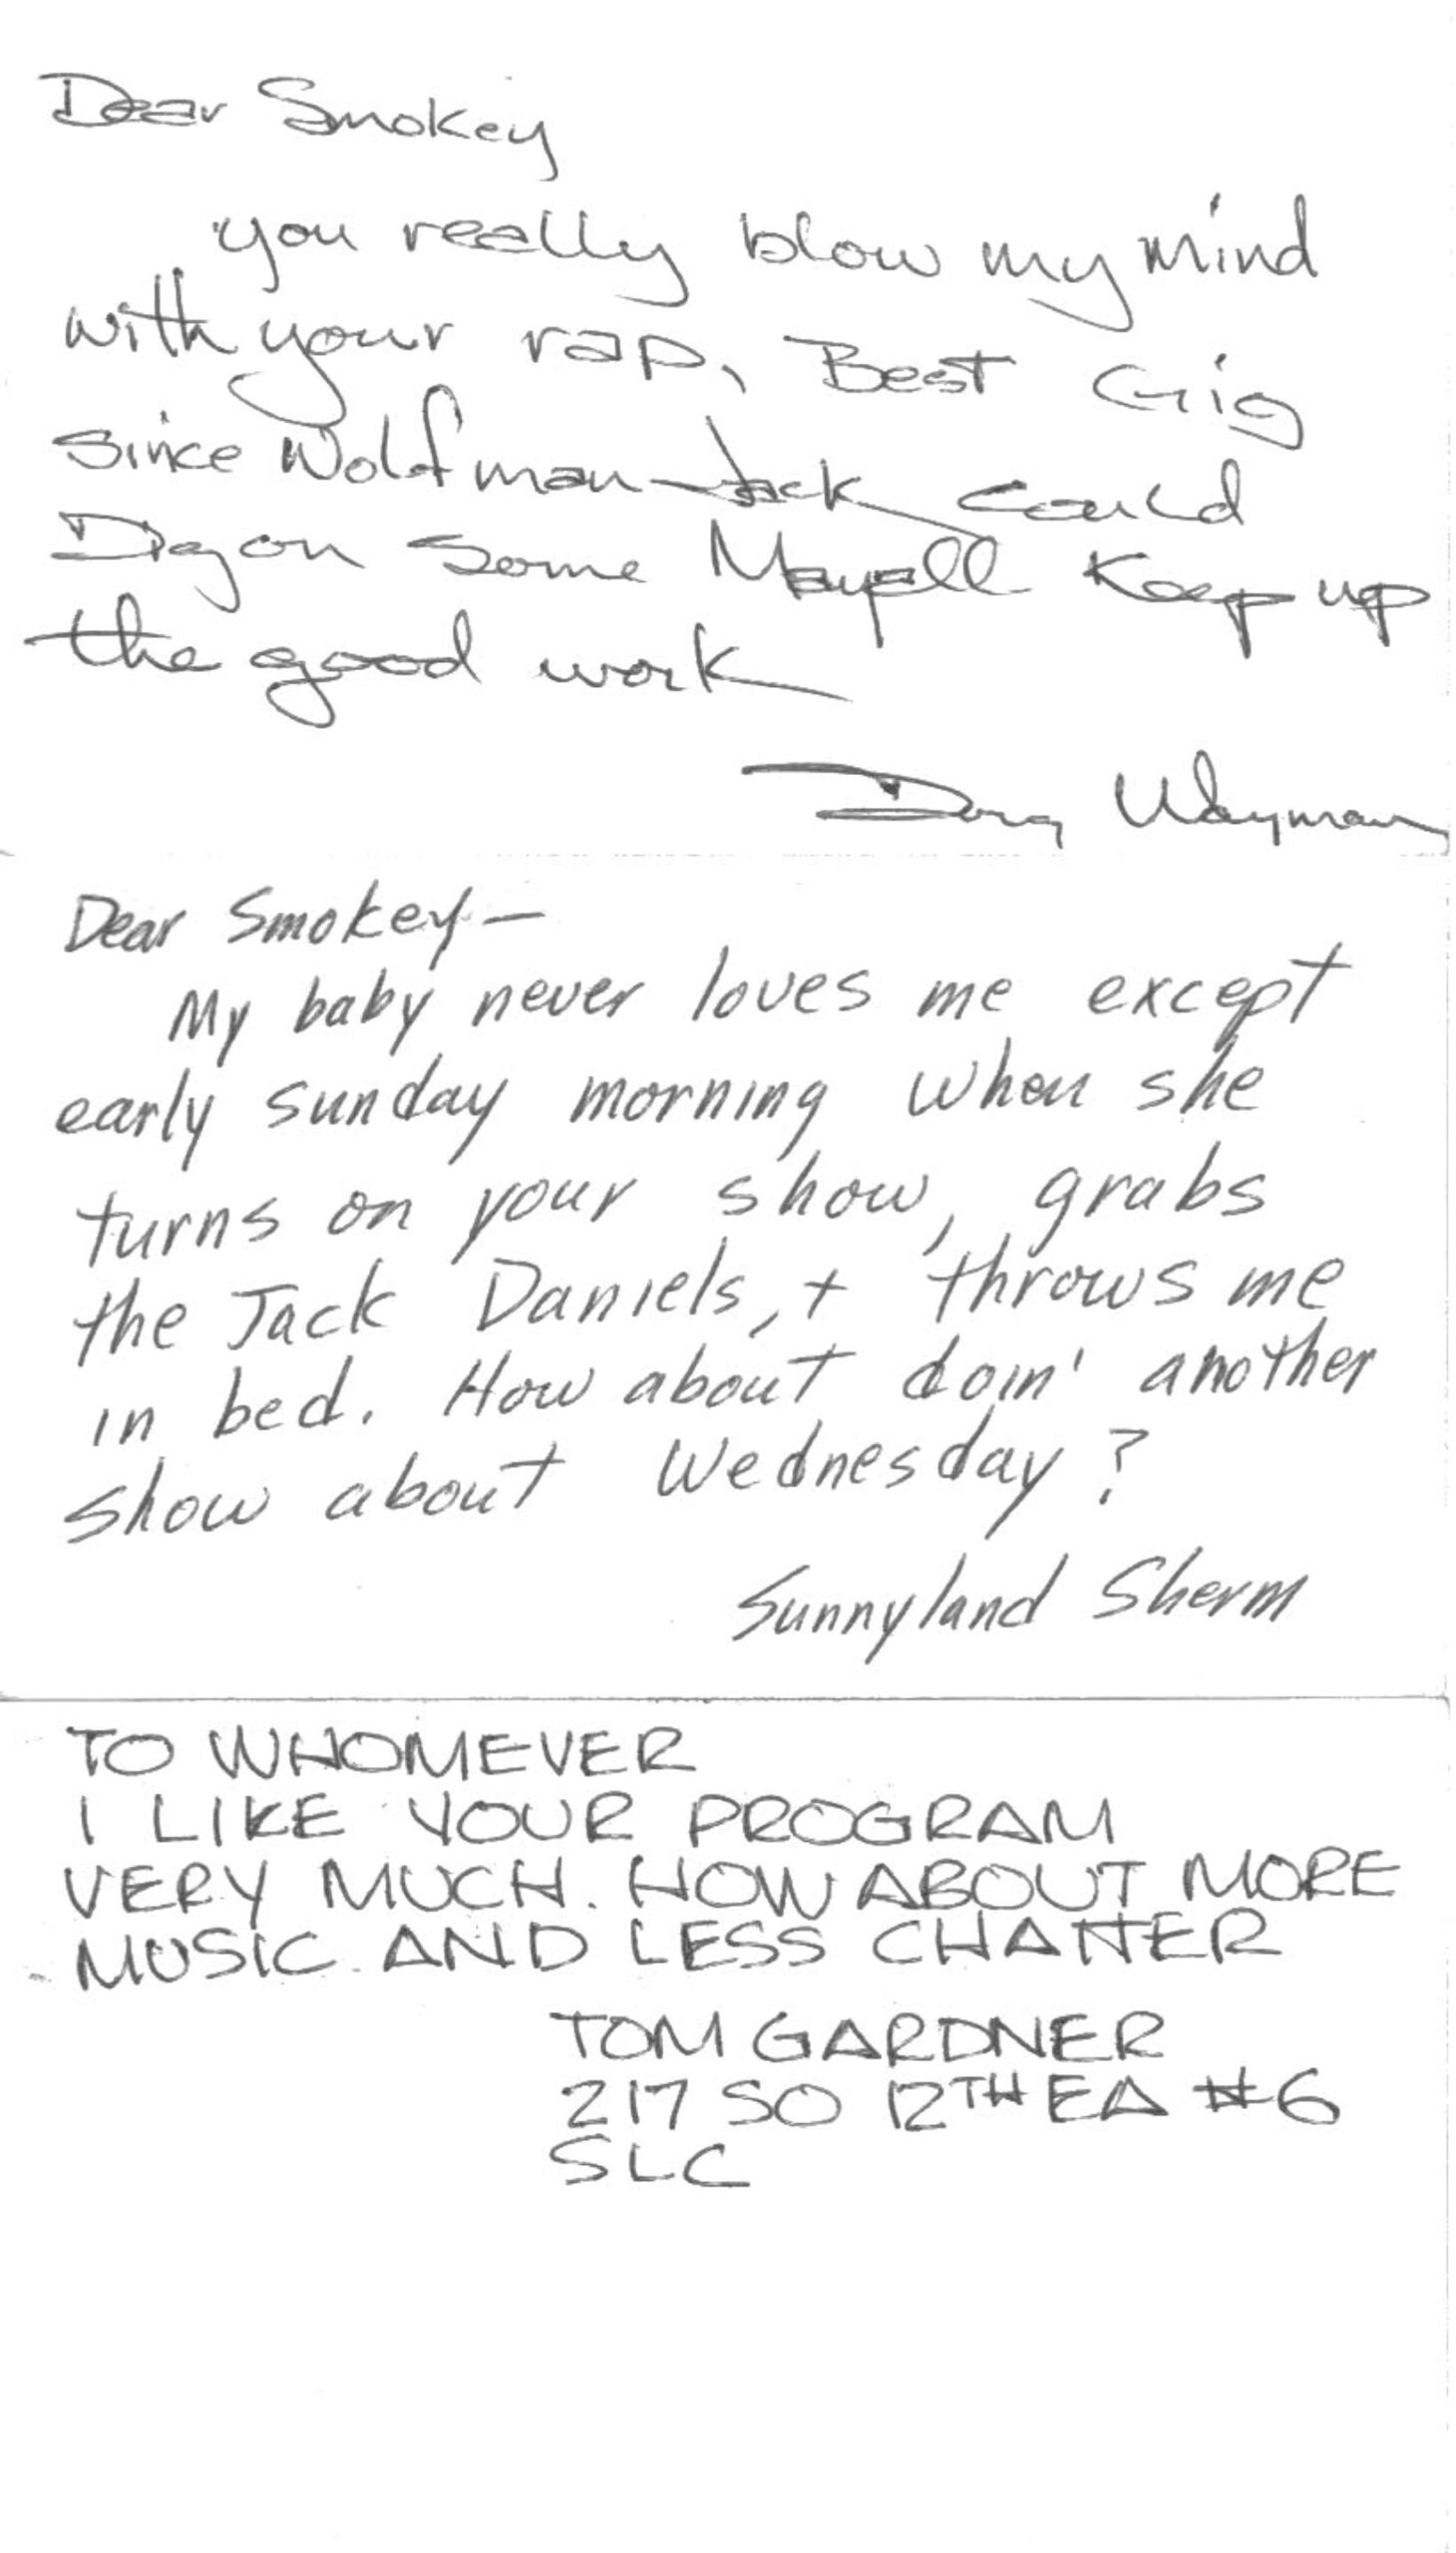 Dear Smokey
you really blow my mind
with your rap, Best Gig
since Wolfman Jack could
Dig on some Mayall Keep up
the good work
Doug Wayman
Dear Smokey—
My baby never loves me except
early sunday morning when she
turns on your show, grabs
the Jack Daniels, + throws me
in bed. How about doin' another
show about Wednesday?
Sunnyland Sherm
TO WHOMEVER
I LIKE YOUR PROGRAM
VERY MUCH. HOW ABOUT MORE
MUSIC AND LESS CHATTER
TOM GARDNER
217 SO 12TH EA #6
SLC